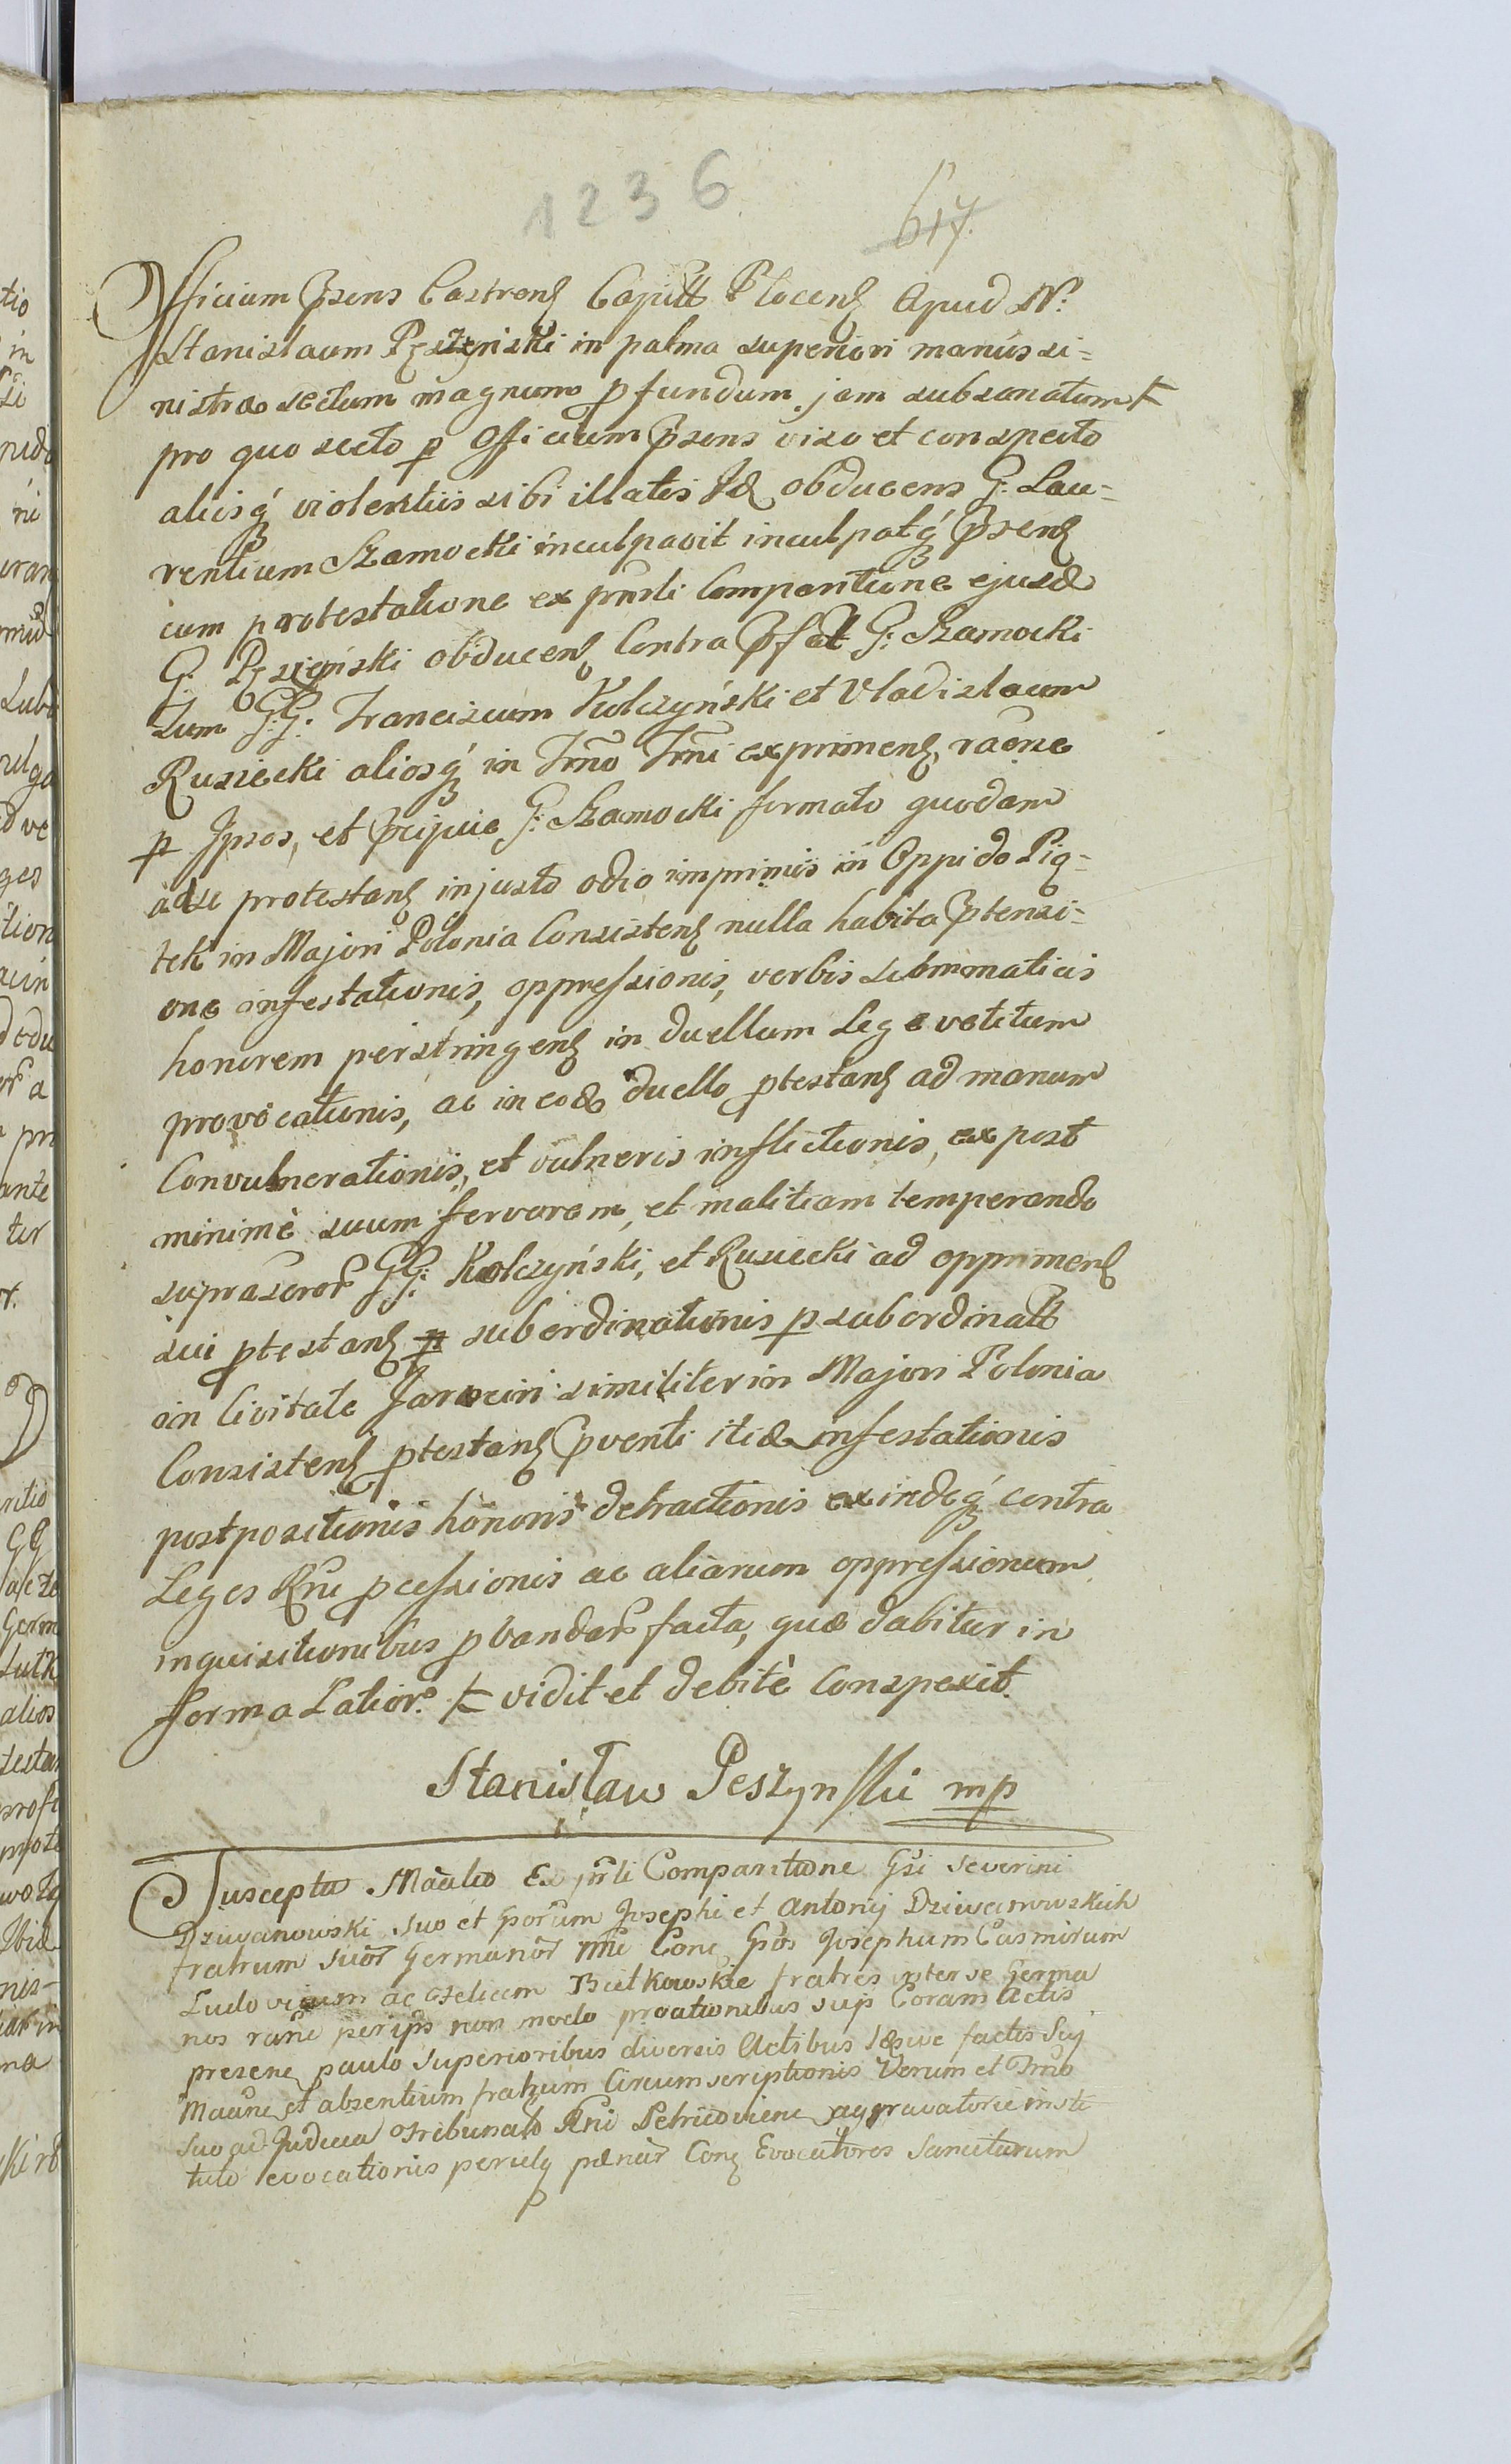 1236
617.
Officium Pṣens Castrenς Capitt Plocenς Apud N.
Stanislaum Pęszyński in palma superiori manûs si=
nistræ sectum magnum pfundum jam subsanatum ⊬
pro quo secto p Officium Psens viso et conspecto
aliisq́ violentiis sibi illatis Id obducens G: Lau=
rentium Szamocki inculpavit inculpatq́ Psenς
cum protestatione ex prnli Comparitione ejusd
G: Pęszyński obducenς Contra Pfat G: Szamocki
Tum GG: Franciscum Kolczyński et Vladislaum
Rusiecki aliosq́ in Trno Trni exprimenς raone
p Ipsos, et Pcipue G: Szamocki formato quodam
adse protestanς injusto odio imprimis in Oppido Pią=
tek in Majori Polonia Consistenς nulla habita Ptensi=
one infestationis, oppressionis, verbis scommaticis
honorem perstringenς in duellum Lege vetitum
provocationis, ac in eod duello ptestanς ad manum
Convulnerationis, et vulneris inflictionis, ex post
minimè suum fervorem, et malitiam temperando
suprascror GG: Kolczyński, et Rusiecki ad opprimenς
sui ptestanς subordinationis p subordinatt
in Civitate Jarocin similiter in Majori Polonia
Consistenς ptestanς Pventi itid infestationis
postpositionis honoris detractionis exindeq́ contra
Leges Rni pcessionis ac aliarum oppressionum
inquisitionibus pbandar facta, quæ dabitur in
forma Latior. ⊬ vidit et debitè Conspexit.
Stanisław Peszynski mp
Susceptu Maulio Ex prli Comparitione Gsi Severini
Dziwanowski suo et Gsorum Josephi et Antonij Dziwanowskich
fratrum suor Germanor nne Conc Gsos Josephum Casmirum
Ludovicum ac Felicem Bielkowskie fratres inter se Germa
nos raone perips non modo proationibus sup Coram Actis
presenς paulo superioribus diversis Actibus læsive factis Suy
Maune et absentium fratrum Circumscriptionis Verum et Trno
suo ad Judicia Tribunals Rni Petricoviene aggravatorie insti
tuto evocationis periclq pænar Conς Evocatores Sancitarum